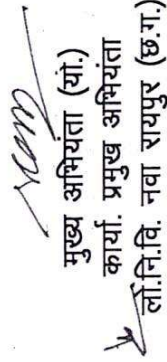 मुख्य अभियंता (यो.)
कार्या. प्रमुख अभियंता
लो.नि.वि. नवा रायपुर (छ.ग.)